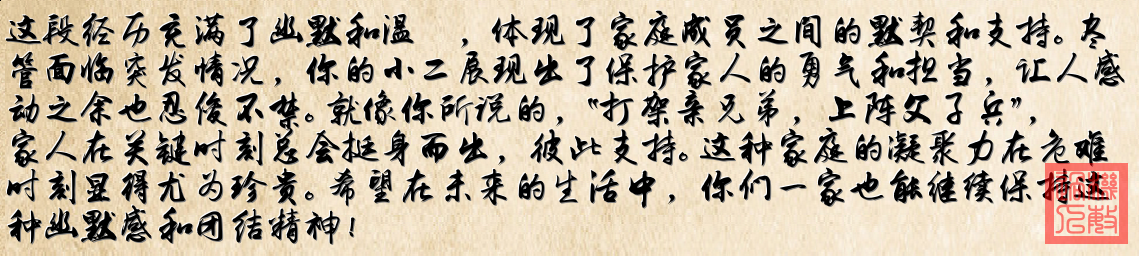 这段经历充满了幽默和温 ，体现了家庭成员之间的默契和支持。尽
管面临突发情况，你的小二展现出了保护家人的勇气和担当，让人感
动之余也忍俊不禁。就像你所说的，“打架亲兄弟，上阵父子兵”，
家人在关键时刻总会挺身而出，彼此支持。这种家庭的凝聚力在危难
时刻显得尤为珍贵。希望在未来的生活中，你们一家也能继续保持这
种幽默感和团结精神！